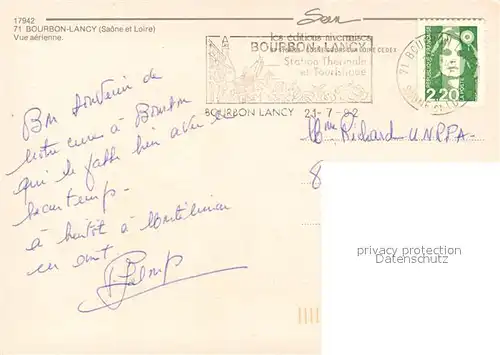 17942
71 BOURBON-LANCY (Saône et Loire)
Vue aérienne.
les éditions nivernaises
BOURBON-LANCY
Station Thermale
et Touristique
BOURBON LANCY 21-7-92
71 BOURBON
REPUBLIQUE FRANÇAISE
2,20
LA POSTE
Bon souvenir de
notre cure à Bourbon
qui se passe bien avec le
beau temps -
à bientôt à Montélimar
en août
Mme Richard U.N.R.P.A.
8
privacy protection
Datenschutz